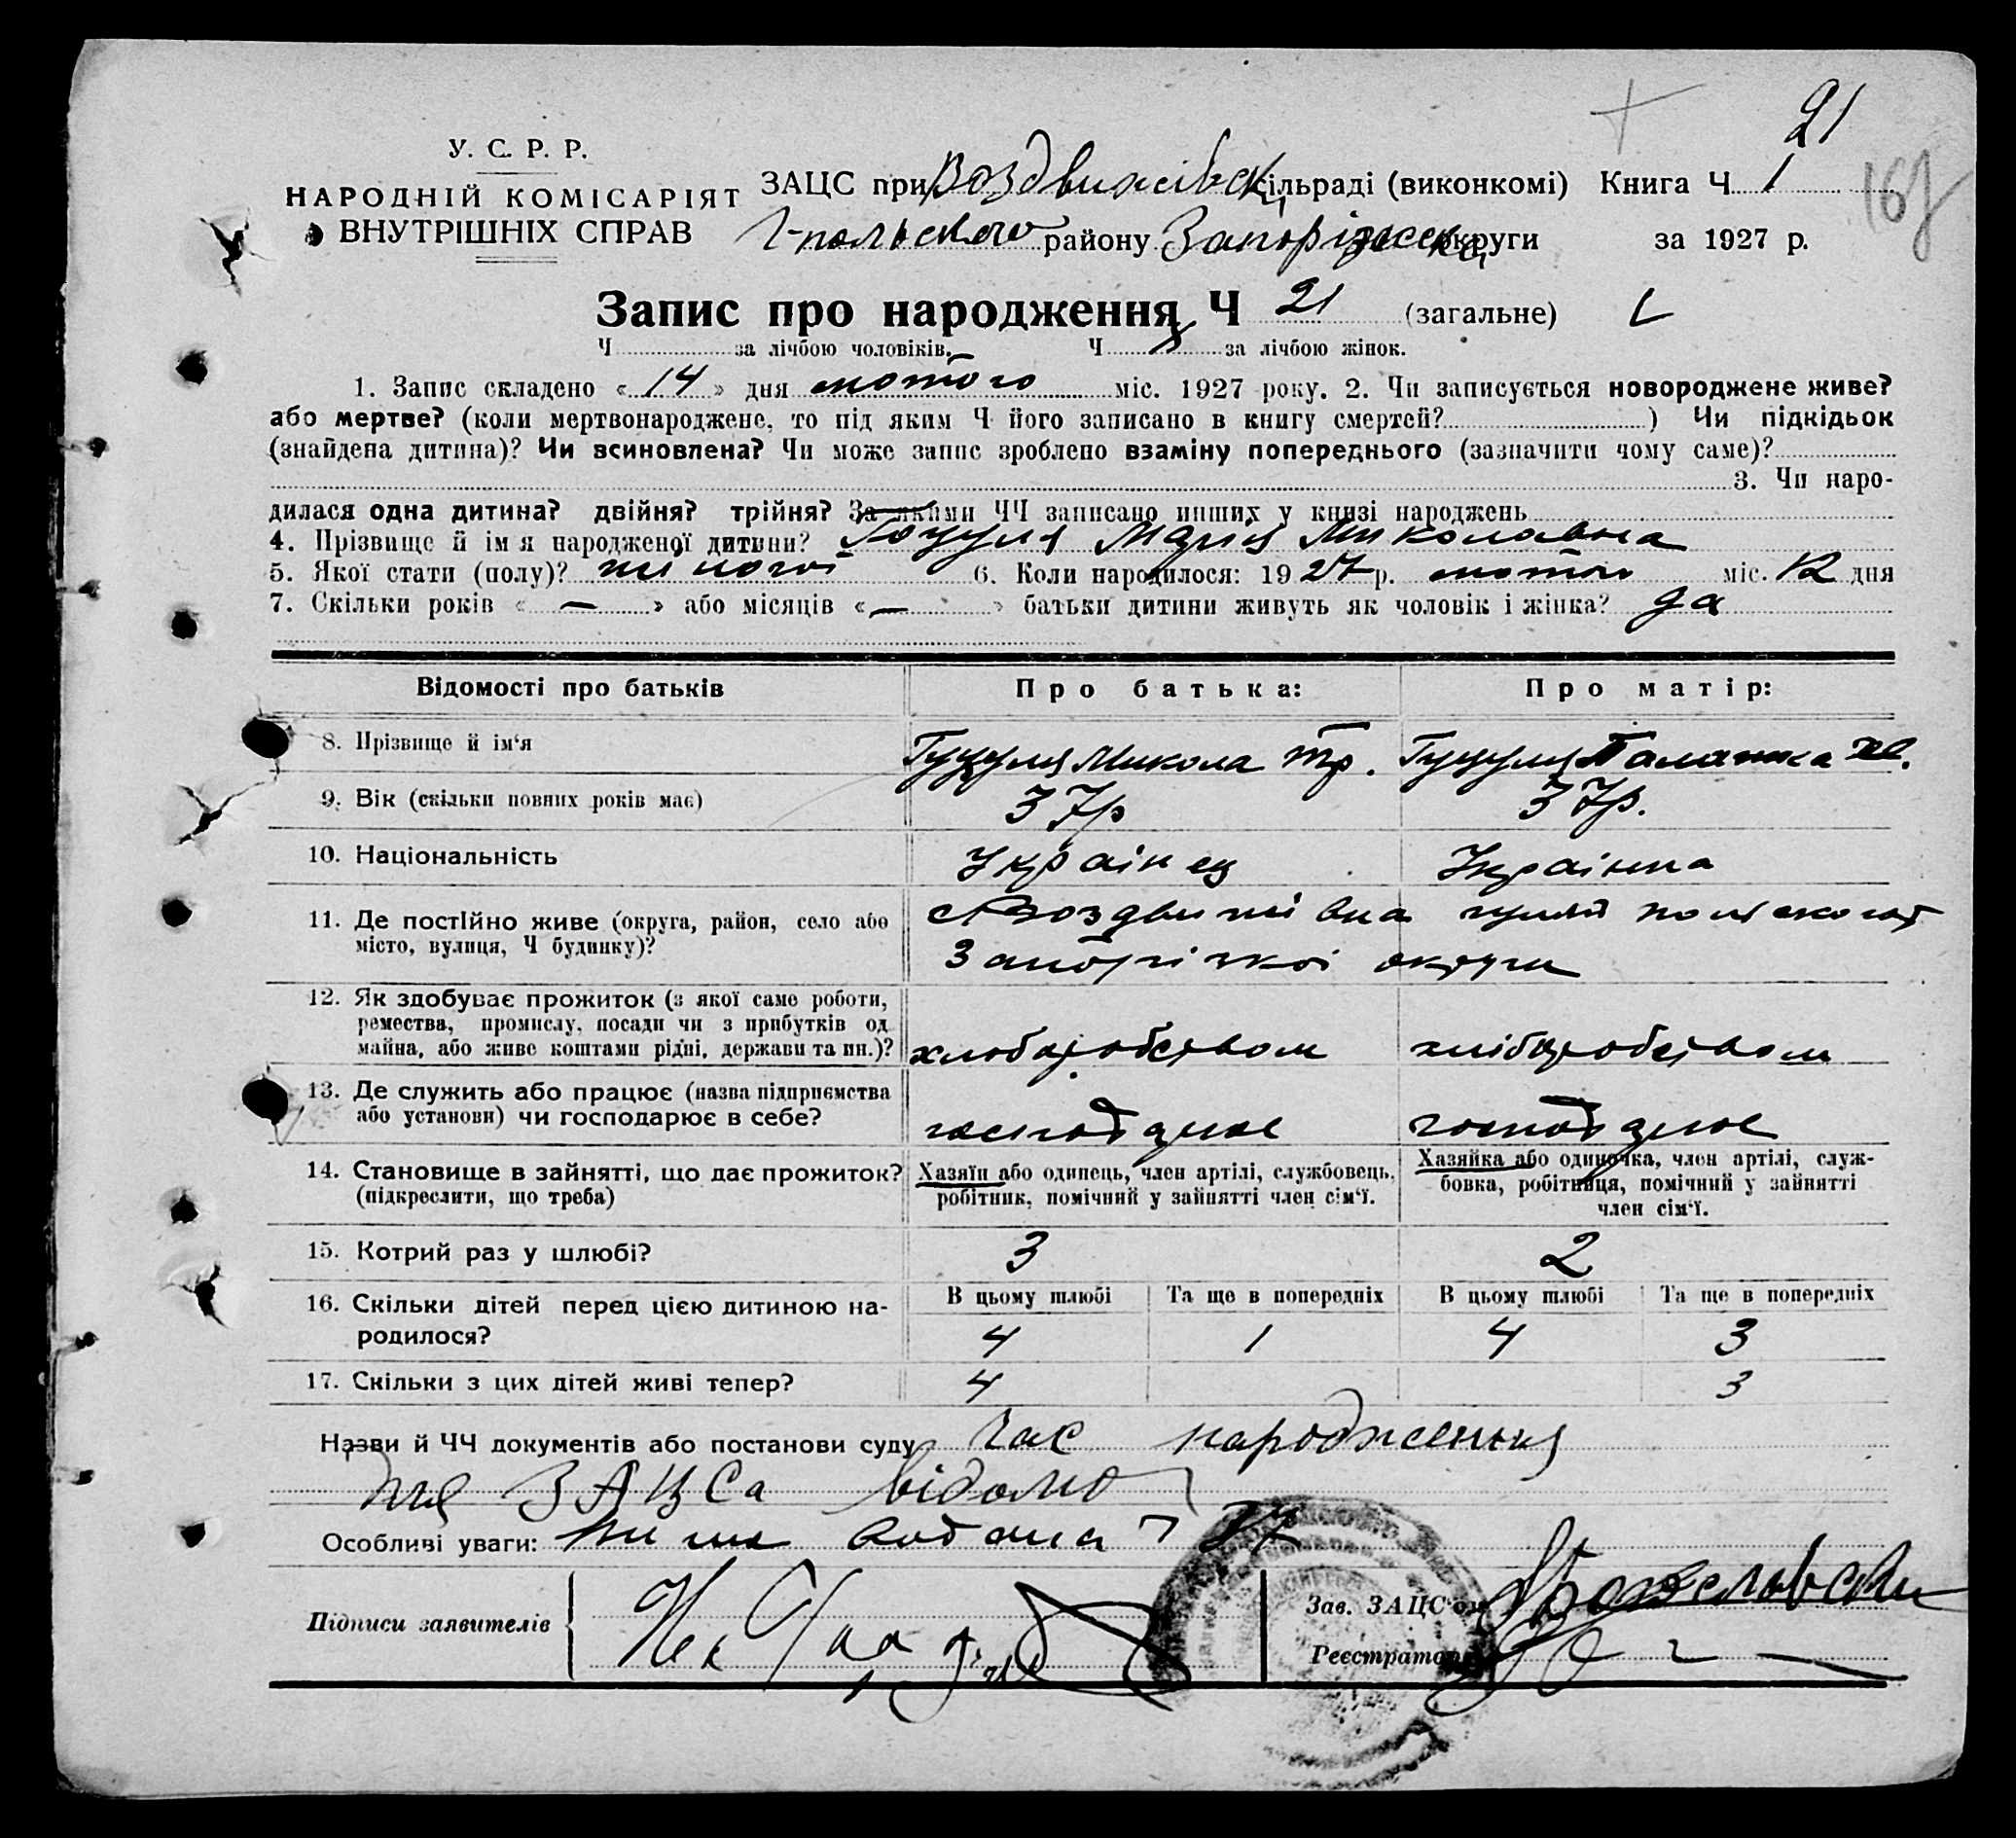 21
У. С. Р. Р.
НАРОДНІЙ КОМІСАРІЯТ
ВНУТРІШНІХ СПРАВ
ЗАЦС при Воздвижівськ. сільраді (виконкомі) Книга Ч. 1
Г-польского району Запоріжськ. округи за 1927 р.
Запис про народження Ч 21 (загальне)
Ч за лічбою чоловіків. Ч за лічбою жінок.
1. Запис складено « 14 » дня лютого міс. 1927 року. 2. Чи записується новороджене живе?
або мертве? (коли мертвонароджене, то під яким Ч його записано в книгу смертей? ) Чи підкідьок
(знайдена дитина)? Чи всиновлена? Чи може запис зроблено взаміну попереднього (зазначити чому саме)?
3. Чи наро-
дилася одна дитина? двійня? трійня? За якими ЧЧ записано инших у книзі народжень
4. Прізвище й ім я народженої дитини? Гуцуля Марія Миколавна
5. Якої стати (полу)? жіночої 6. Коли народилося: 1927 р. лютого міс. 12 дня
7. Скільки років « — » або місяців « — » батьки дитини живуть як чоловік і жінка? да
Відомості про батьків Про батька: Про матір:
8. Прізвище й ім'я Гуцуля Микола Тр. Гуцуля Палажка
9. Вік (скільки повних років має) 37р 37р.
10. Національність Українец Українка
11. Де постійно живе (округа, район, село або
місто, вулиця, Ч будинку)?
Воздвижівка гуляй польского
Запорізкої округи
12. Як здобуває прожиток (з якої саме роботи,
ремества, промислу, посади чи з прибутків од
майна, або живе коштами рідні, держави та ин.)? хлоборобством хліборобством
13. Де служить або працює (назва підприємства
або установи) чи господарює в себе?
14. Становище в зайнятті, що дає прожиток?
(підкреслити, що треба)
Хазяїн або одинець, член артілі, службовець,
робітник, помічний у зайнятті член сім'ї.
Хазяйка або одиночка, член артілі, служ-
бовка, робітниця, помічний у зайнятті
член сім'ї.
15. Котрий раз у шлюбі? 3 2
16. Скільки дітей перед цією дитиною на-
родилося?
В цьому шлюбі Та ще в попередніх В цьому шлюбі Та ще в попередніх
4 1 4 3
17. Скільки з цих дітей живі тепер? 4 3
Назви й ЧЧ документів або постанови суду час народження
для ЗАЦСа відомо
Особливі уваги:
Підписи заявителів
Зав. ЗАЦС'ом
Реєстратор